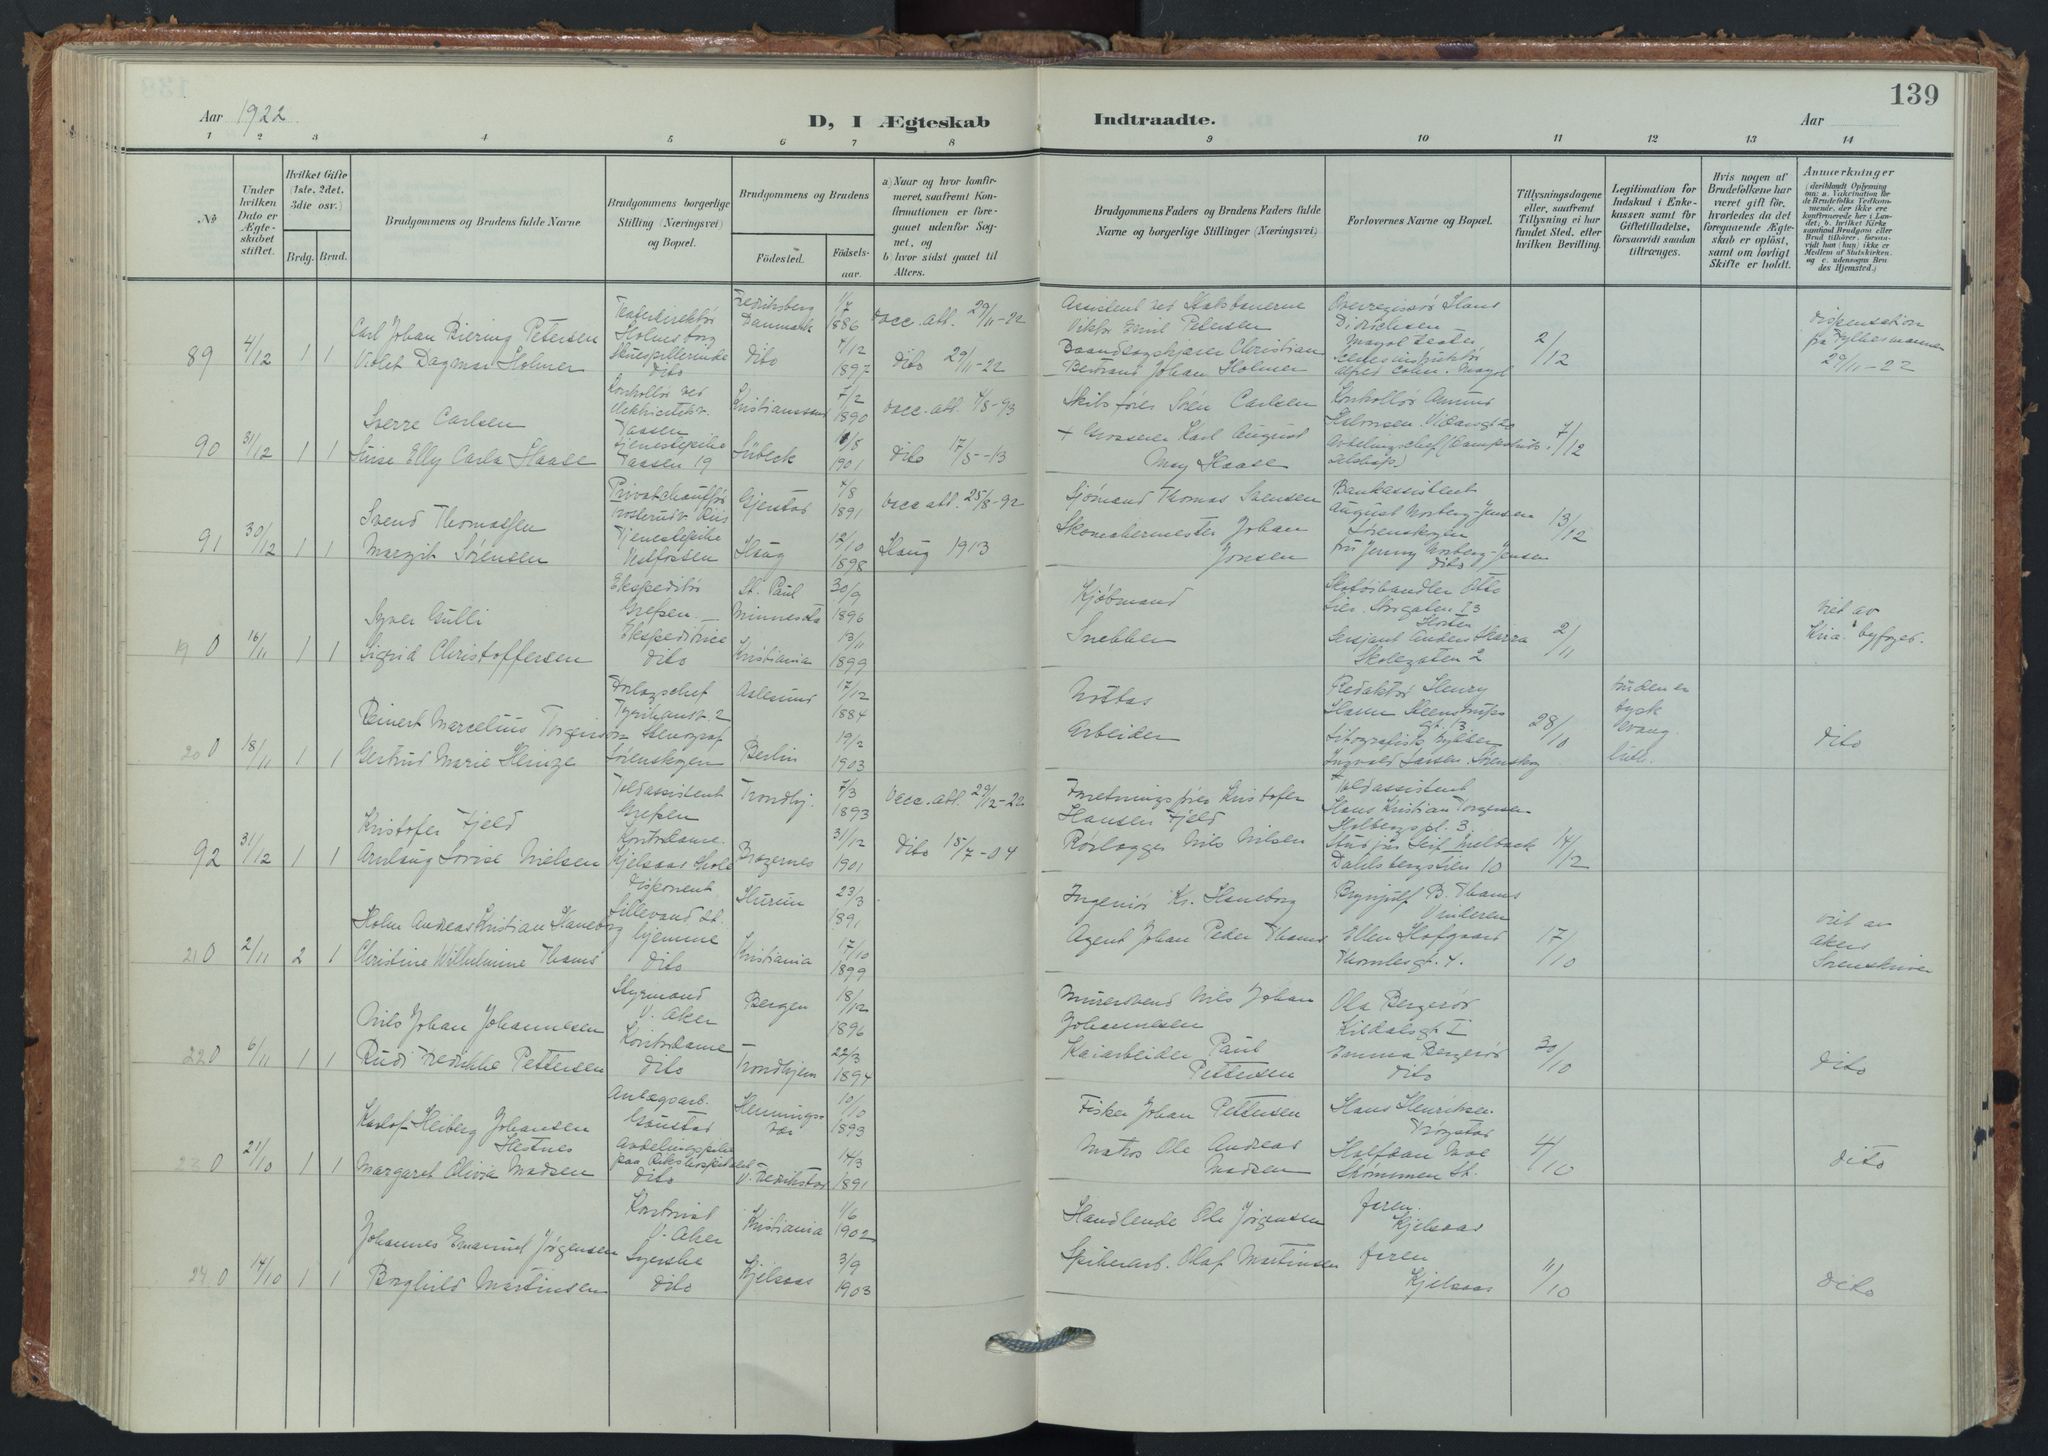 139
Aar 1922.
D, I Ægteskab Indtraadte.
Aar
1 2 3 4 5 6 7 8 9 10 11 12 13 14
No
Under hvilken Dato er Ægteskabet stiftet.
Hvilket Gifte (1ste, 2det, 3die osv.)
Brdg. Brud.
Brudgommens og Brudens fulde Navne
Brudgommens borgerlige Stilling (Næringsvei) og Bopæl.
Brudgommens og Brudens
Fødested. Fødselsaar.
a) Naar og hvor konfirmeret, saafremt Konfirmationen er foregaaet udenfor Sognet, og
b) hvor sidst gaaet til Alters.
Brudgommens Faders og Brudens Faders fulde Navne og borgerlige Stillinger (Næringsvei)
Forlovernes Navne og Bopæl.
Tillysningsdagene eller, saafremt Tillysning ei har fundet Sted, efter hvilken Bevilling.
Legitimation for Indskud i Enkekassen samt for Giftetilladelse, forsaavidt saadan tiltrænges.
Hvis nogen af Brudefolkene har været gift før, hvorledes da det foregaaende Ægteskab er opløst, samt om lovligt Skifte er holdt.
Anmærkninger
89 4/12 1 1
Carl Johan Biering Petersen
Violet Dagmar Holmer
Teaterdirektør
Holmsborg
Skuespillerinde
Dito
Fredriksberg Danmark 1/7 1886
Dito 7/12 1897
Vacc. att. 29/11-22
Dito 29/11-22
Assistent ved Statsbanerne
Viktor Emil Petersen
Baandlagskjører Christian
Bertrand Johan Holmer
Overregissør Hans
Didrichsen
Mayol Teater
Alfred Cohn. Mayol
2/12
Dispensation
på Fylkesmannen
29/11-22
90 31/12 1 1
Sverre Carlsen
Elly Carla Haase
Kontrollør ved
Elektricitetsv.
Taasen
Tjenestepike
Taasen 19
Kristianssand 7/2 1890
Lübeck 1901
Vacc. att. 4/8-93
Dito 17/5-13
Skibsfører Søren Carlsen
+ Grosserer Karl August
May Haase
Kontrollør Amund
Halvorsen
7/12
91 30/12 1 1
Svend Thomassen
Margit Sørensen
Privatchauffør
Tjenestepike
Vestfossen
Gjerstad 4/8 1891
Haug 12/10 1898
Vacc att. 25/8-92
Haug 1913
Sjømand Thomas Svensen
Skomakermester Johan
Jonsen
Bankassistent
August Norberg-Jensen
Sørenskogen
fru Jenny Norberg-Jensen
Dito
13/12
19 0 16/11 1 1
Syver Gulli
Sigrid Christoffersen
Ekspeditør
Grefsen
Ekspeditrice
Dito
St. Paul Minnesota 30/9 1896
Kristiania 13/11 1899
Kjøbmand
Snekker
Otto
Lier. Storgaten 13
Sersjant Anders Skarra
Skolegaten 2
2/11
Viet av
Kria. byfoged.
20 0 18/11 1 1
Reinert Marcelius Torgersen
Gertrud Marie Heinze
Forlagschef
Tyrihansv. 2
Stenograf
Sørenskogen
Aalesund 17/12 1884
Berlin 19/2 1903
Arbeider
Redaktør Henry
Ingvald Larsen. Sørenskog
28/10
Bruden er
tysk
evang.
luth.
Dito
92 31/12 1 1
Kristofer Fjeld
Arnlaug Lovise Nielsen
Toldassistent
Grefsen
Kontordame.
Kjelsaas Skole
Trondhj. 7/3 1893
Bragernes 31/12 1901
Vacc. att. 29/12-22
Dito 15/7-04
Forretningsfører Kristofer
Hansen Fjeld
Rørlægger Nils Nilsen
Toldassistent
Hans Kristian Torgersen
Holbergspl. 3
Dahlsbergstien 10
14/12
21 0 2/11 2 1
Holm Andreas Kristian Haneborg
Christine Wilhelmine Thams
Disponent
Lillevand st.
hjemme
Dito
Hurum 23/3 1891
Kristiania 17/10 1899
Ingeniør Kr. Haneborg
Agent Johan Peder Thams
Brynjulf B. Thams
Vinderen
Ellen Hofgaard
Thomlesgt. 4.
17/10
viet av
Akers
Sorenskriver
22 0 6/11 1 1
Nils Johan Johannesen
Rudi Fredrikke Pettersen
Styrmand
V. Aker
Kontordame
Dito
Bergen 18/12 1896
Trondhjem 22/3 1894
Murersvend Nils Johan
Johannesen
Kaiarbeider Paul
Pettersen
Ola Bergerør
Kildalsgt I
Emma Bergerør
Dito
30/10
Dito
23 0 21/10 1 1
Karlof Heiberg Johansen
Hestnes
Margaret Olivia Madsen
Anlægsarb.
Gaustad
Avdelingspike
paa Rikshospitalet
Dito
Henningsvær 10/10 1893
V. Fredrikstad 14/3 1891
Fisker Johan Pettersen
Matros Ole Andreas
Madsen
Hans Henriksen.
Trøgstad
Halfdan Moe
Strømmen St.
4/10
Dito
24 0 14/10 1 1
Johannes Emanuel Jørgensen
Borghild Martinsen
Kontorist
V. Aker
Syerske
Dito
Kristiania 1/6 1902
Kjelsaas 3/9 1903
Handlende Ole Jørgensen
Spikerarb. Olaf Martinsen
faren.
Kjelsaas
faren
Kjelsaas
11/10
Dito